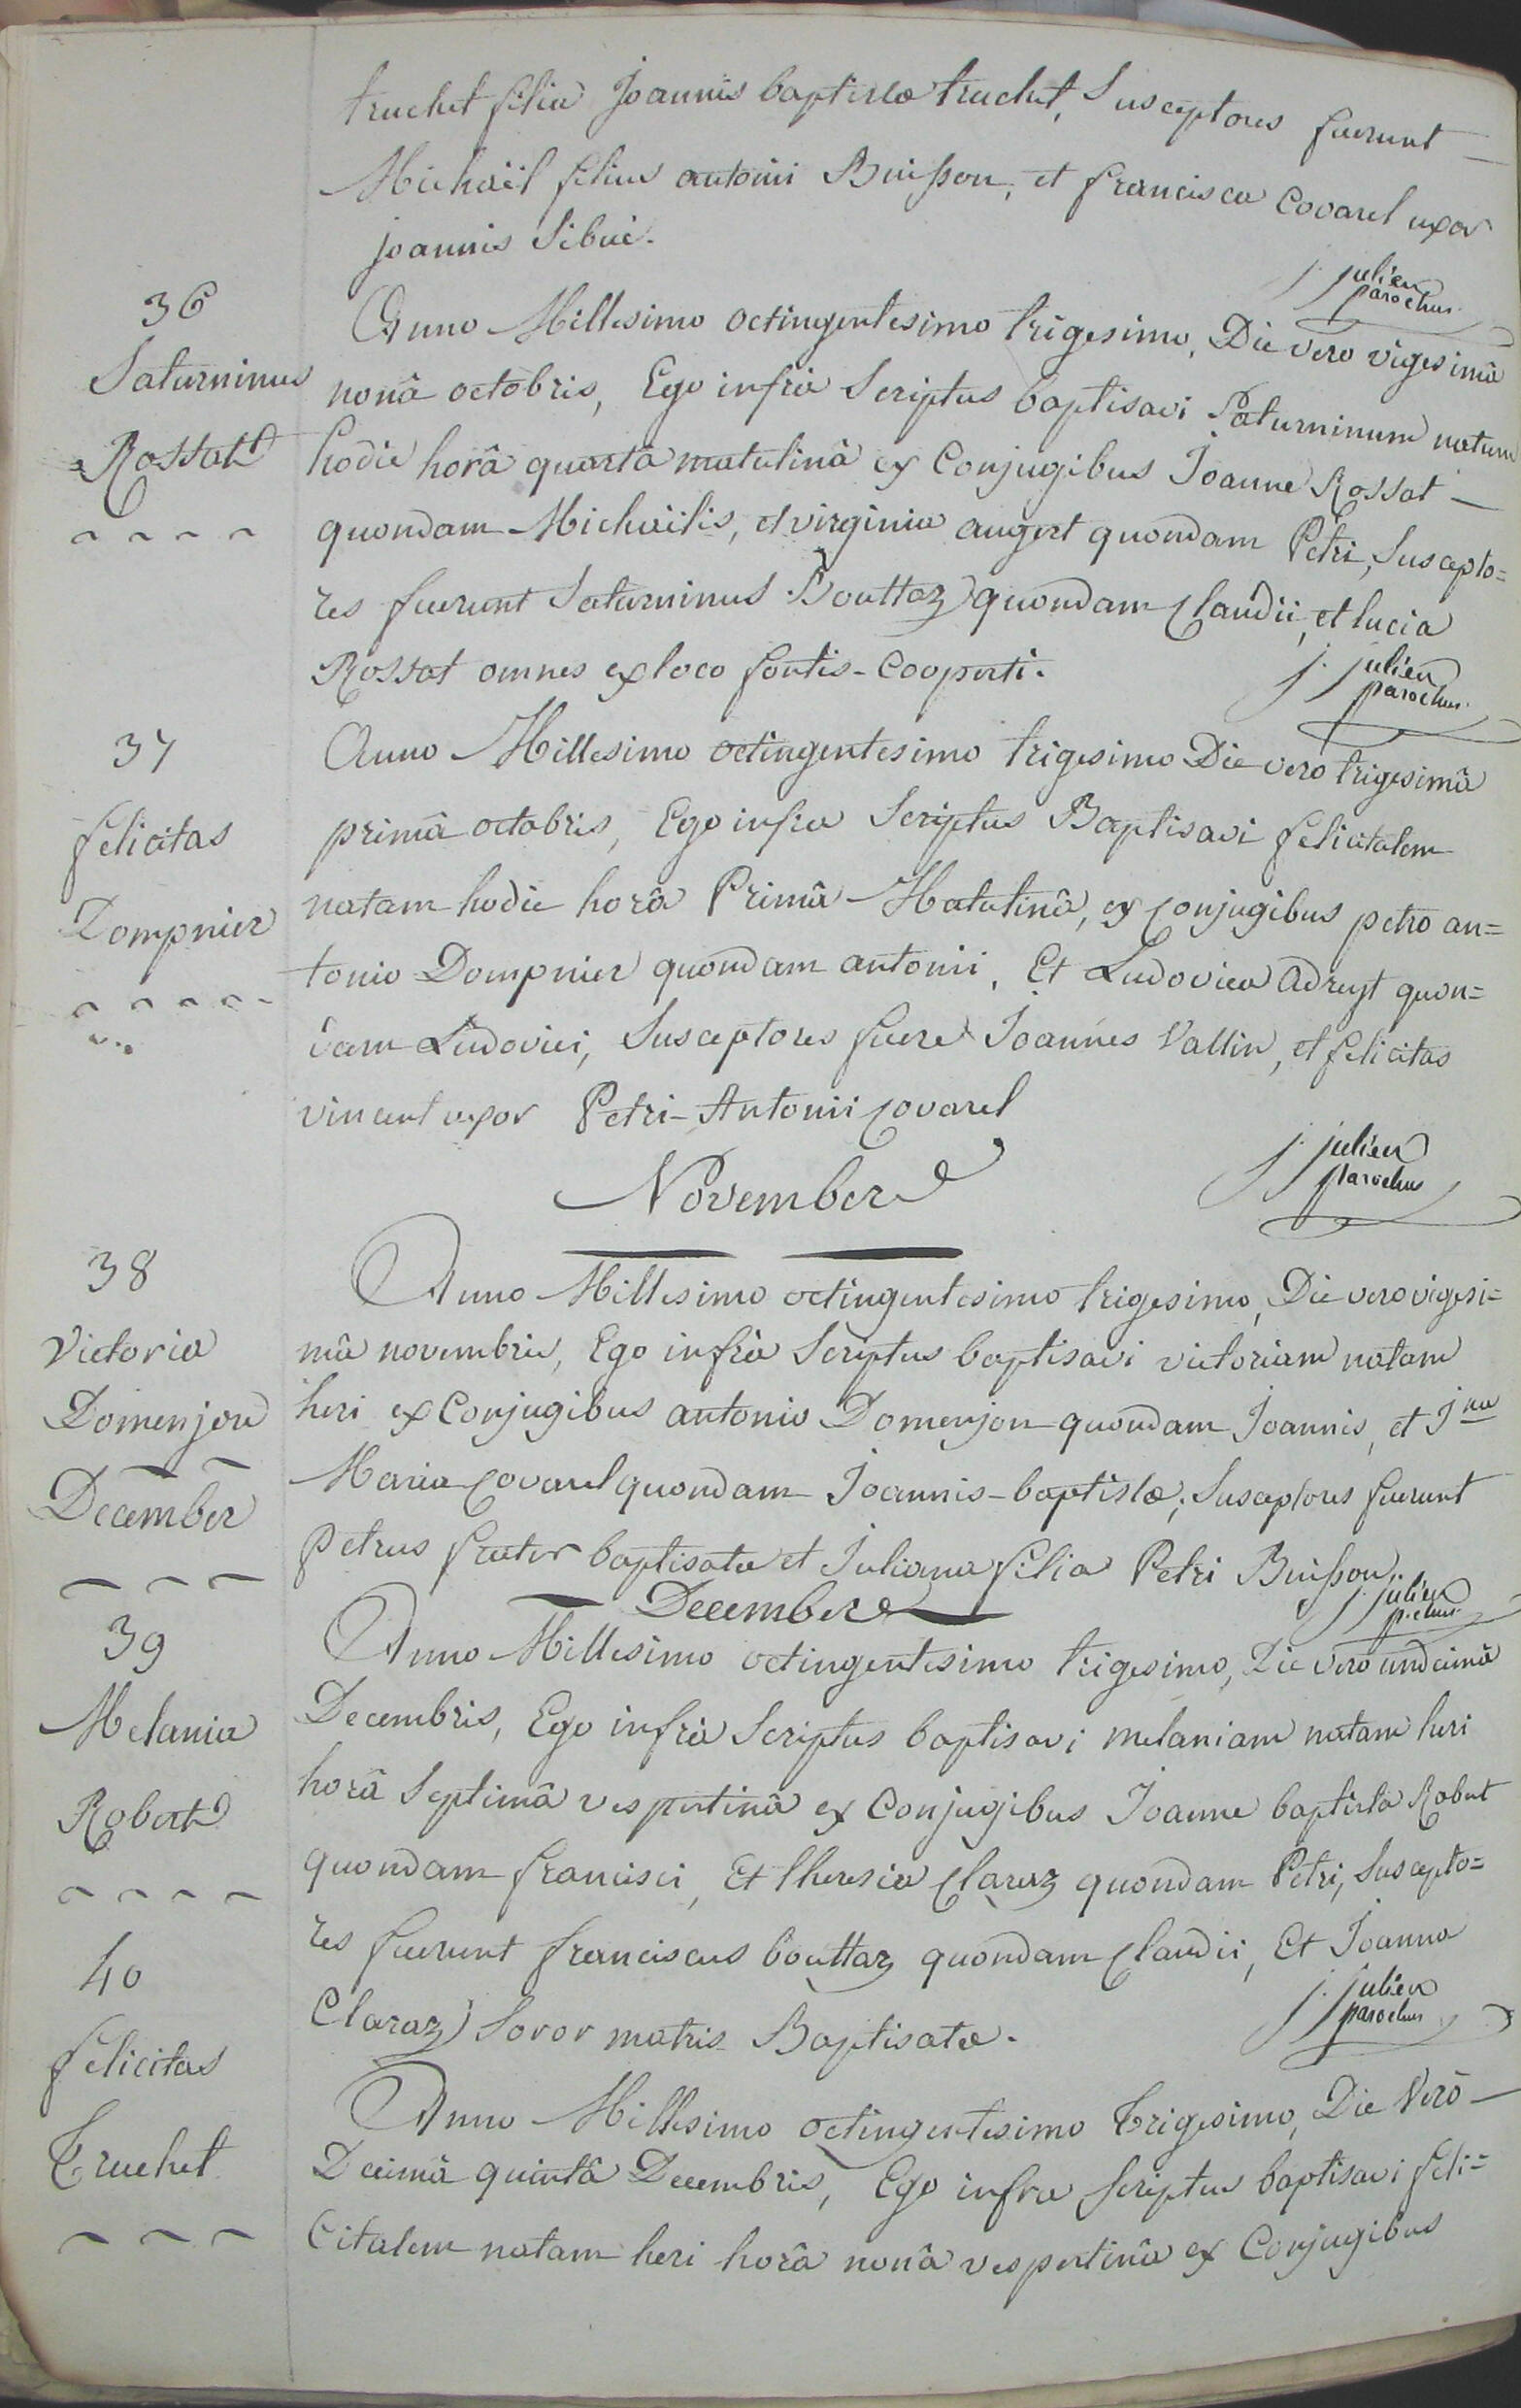 truchet filia Joannis baptistæ truchet, Susceptores fuerunt
Michaël filius antonii Buisson, et francisca Covarel uxor
joannis Sibué.
j. julien
parochus.
36
Saturninus
Rossat
Anno Millesimo octingentesimo trigesimo, Die vero vigesimâ
nonâ octobris, Ego infrà Scriptus baptisavi Saturninum natum
hodie horâ quartâ matutinâ ex Conjugibus Joanne Rossat
quondam Michaïlis, et virginia augert quondam Petri, Suscepto=
res fuerunt Saturninus Bouttaz quondam Claudii, et lucia
Rossat omnes ex loco fontis-Cooperti.
j. julien
parochus.
37
felicitas
Dompnier
Anno Millesimo octingentesimo trigesimo Die vero trigesimâ
primâ octobris, Ego infra Scriptus Baptisavi felicitatem
natam hodie horâ Primâ Matutinâ, ex Conjugibus petro an=
tonio Dompnier quondam antonii, Et Ludovica adreyt quon=
dam Ludovici, Susceptores fuere Joannes Vallin, et felicitas
vincent uxor Petri-Antonii Covarel
j. julien
parochus
November
38
Victoria
Domenjon
Anno Millesimo octingentesimo trigesimo, Die vero vigesi=
mâ novembris, Ego infrà Scriptus baptisavi victoriam natam
heri ex Conjugibus antonio Domenjon quondam Joannis, et Jna
Maria Covarel quondam Joannis-baptistæ; Susceptores fuerunt
petrus frater baptisatæ et Juliana filia Petri Buisson.
j. julien
p.chus.
December
December
39
Melania
Robert
Anno Millesimo octingentesimo trigesimo, Die vero undecimâ
Decembris, Ego infrà Scriptus baptisavi melaniam natam heri
horâ Septimâ vespertinâ ex Conjugibus Joanne baptista Robert
quondam francisci, Et theresia Claraz quondam Petri, Suscepto=
res fuerunt franciscus bouttaz quondam Claudii, Et Joanna
Claraz Soror matris Baptisatæ.
j. julien
parochus
40
felicitas
Truchet
Anno Millesimo octingentesimo trigesimo, Die Verò
Decimâ quintâ Decembris, Ego infra Scriptus baptisavi feli=
Citatem natam heri horâ nonâ vespertinâ ex Conjugibus